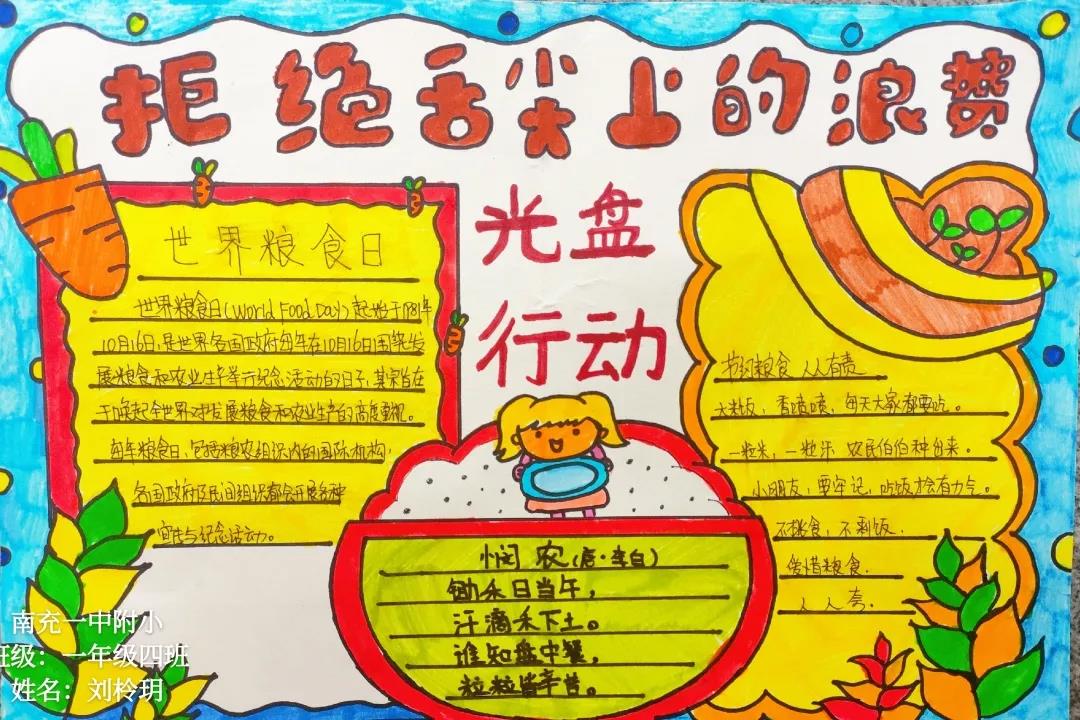 拒绝舌尖上的浪费
光盘
行动
世界粮食日
世界粮食日(World Food Day)起始于1981年
10月16日,是世界各国政府每年在10月16日围绕发
展粮食和农业生产举行纪念活动的日子,其宗旨在
于唤起全世界对发展粮食和农业生产的高度重视。
每年粮食日,包括粮农组织内的国际机构,
各国政府及民间组织都会开展各种
宣传与纪念活动。
悯农(唐·李白)
锄禾日当午,
汗滴禾下土。
谁知盘中餐,
粒粒皆辛苦。
节约粮食 人人有责
大米饭,香喷喷,每天大家都要吃。
一粒米,一粒 农民伯伯种出来。
小朋友,要牢记,吃饭才会有力气。
不挑食,不剩饭.
爱惜粮食.
人人夸.
南充一中附小
班级:一年级四班
姓名:刘柃玥